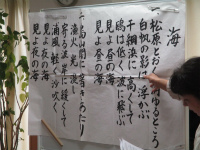 海
一、松原とおく消ゆるところ
白帆の影は浮かぶ
干網浜に高くして
鴎は低く波に飛ぶ
見よ昼の海
見よ昼の海
島山闇に著きあたり
漁火光
寄る波岸に緩くして
浦風軽く沙吹く
見よ夜の海
見よ夜の海